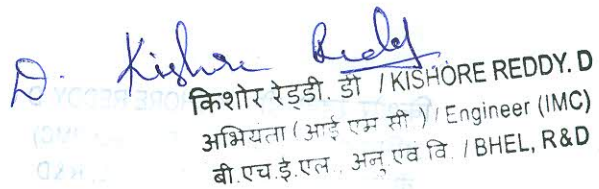 D. Kishore Reddy
किशोर रेड्डी. डी / KISHORE REDDY. D
अभियंता ( आई एम सी ) / Engineer (IMC)
बी.एच.ई.एल., अनु.एवं वि. / BHEL, R&D